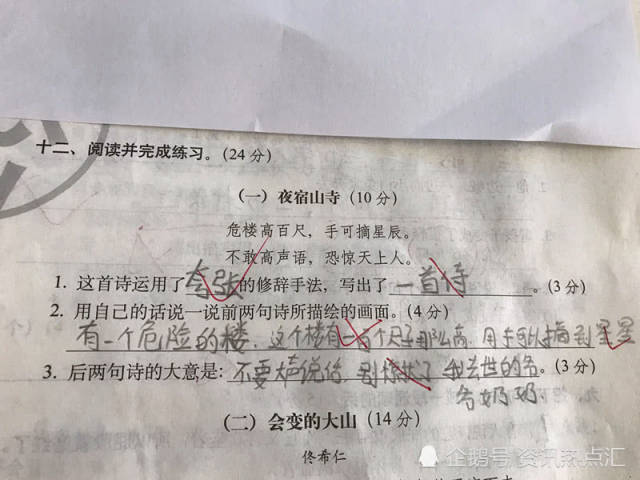 十二、阅读并完成练习。(24分)
(一) 夜宿山寺 (10分)
危楼高百尺，手可摘星辰。
不敢高声语，恐惊天上人。
1. 这首诗运用了夸张的修辞手法，写出了一首诗。(3分)
2. 用自己的话说一说前两句诗所描绘的画面。(4分)
有一个危险的楼，这个楼有一百个尺子那么高，用手可以摘到星星
3. 后两句诗的大意是:不要大声说话，别惊扰了我去世的爷。(3分)
爷奶奶
(二) 会变的大山 (14分)
佟希仁
企鹅号 资讯热点汇